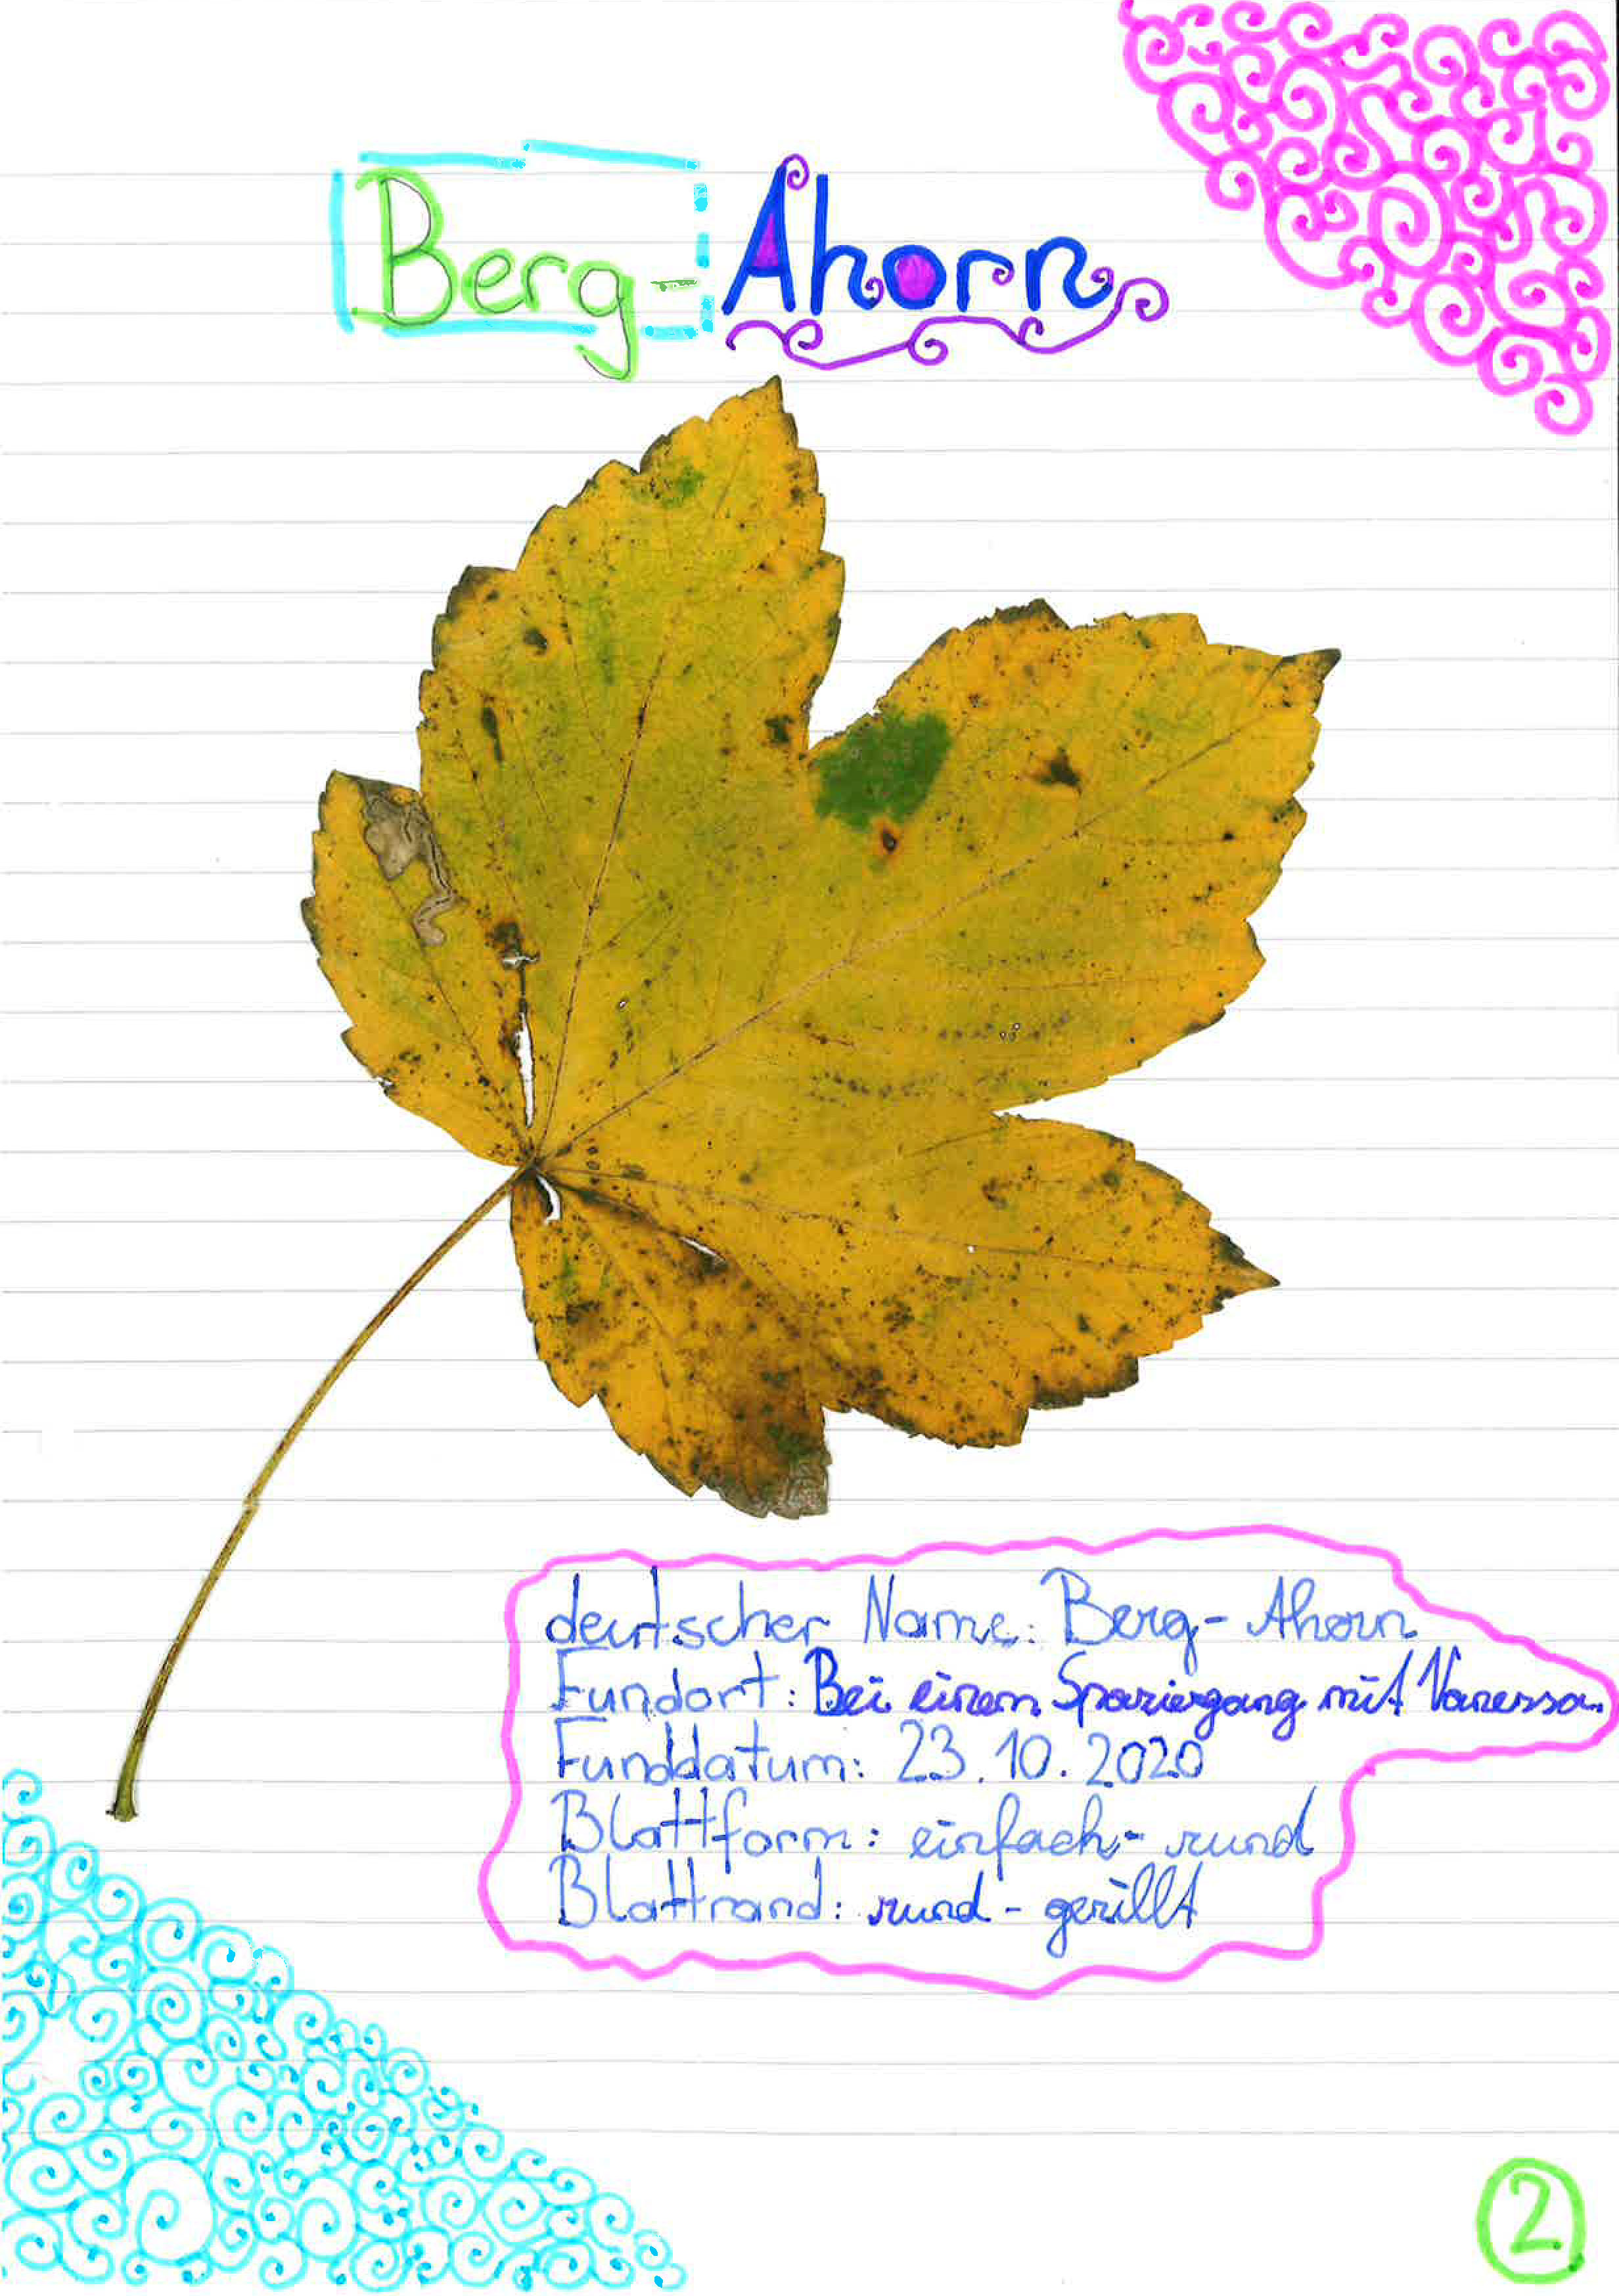 Berg-Ahorn
deutscher Name: Berg-Ahorn
Fundort: Bei einem Spaziergang mit Vanessa.
Funddatum: 23.10.2020
Blattform: einfach-rund
Blattrand: rund-gerillt
2